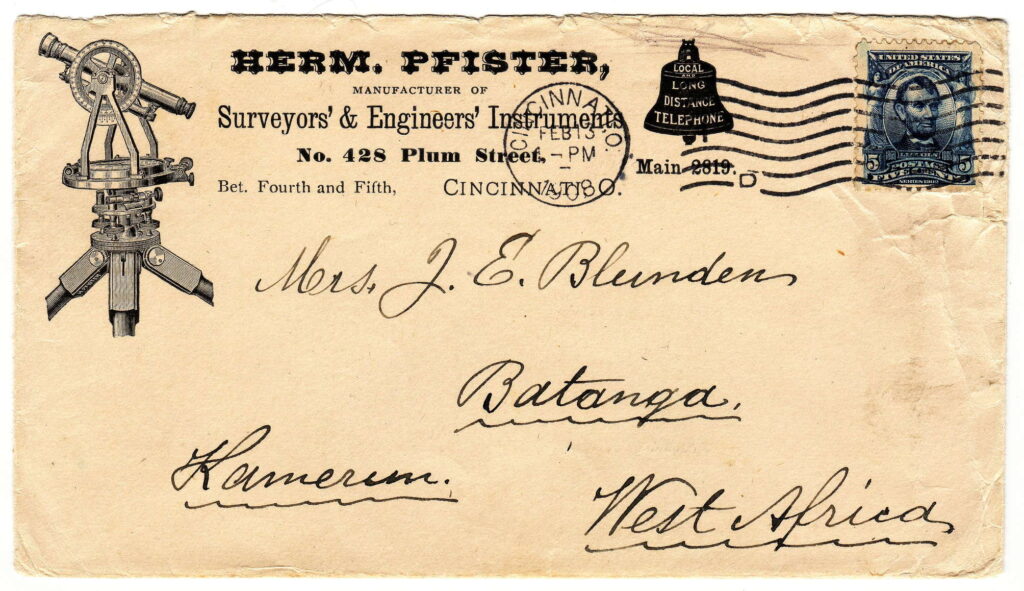 HERM. PFISTER,
MANUFACTURER OF
Surveyors' & Engineers' Instruments
No. 428 Plum Street,
Bet. Fourth and Fifth, CINCINNATI, O.
LOCAL
AND
LONG
DISTANCE
TELEPHONE
Main 2819.
CINCINNATI, O.
FEB 13
-PM
1908
D
UNITED STATES
OF AMERICA
LINCOLN
5 POSTAGE 5
FIVE CENTS
SERIES 1902
Mrs. J. E. Blunden
Batanga.
Kamerun.
West Africa